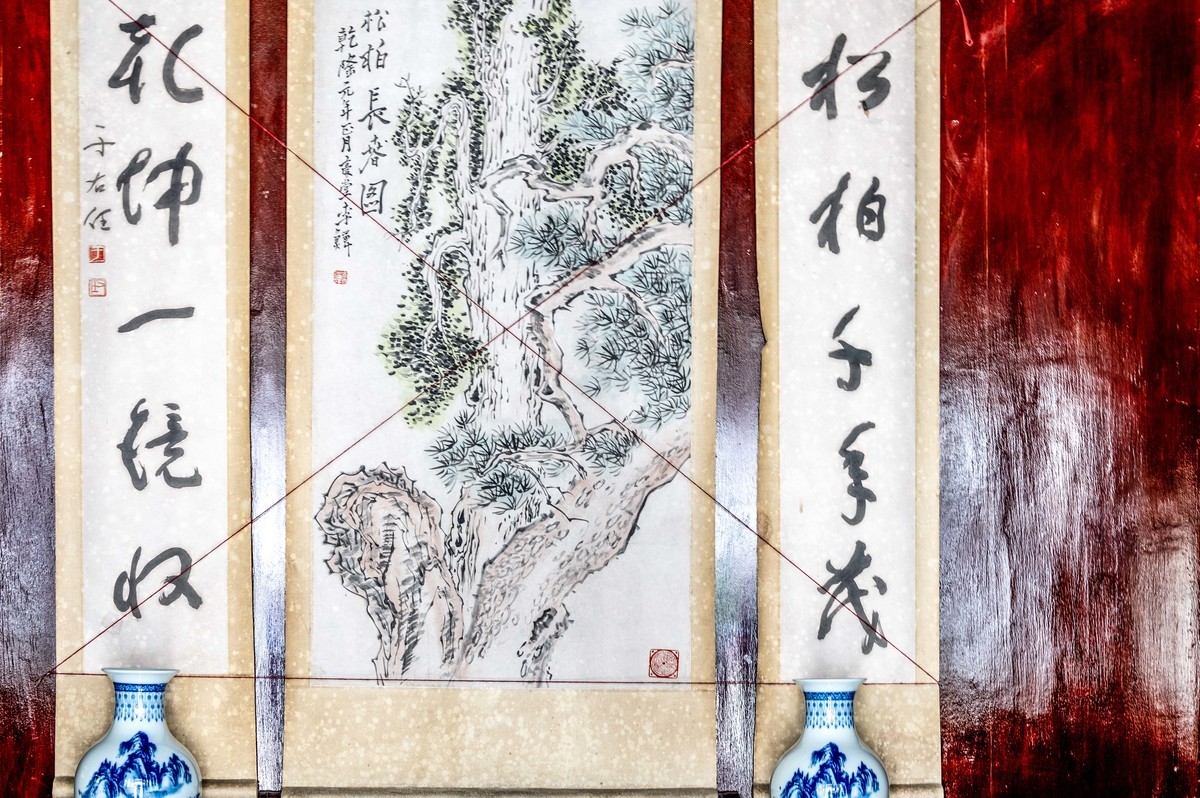 松柏千年茂
松柏長春图
乾隆元年正月
乾坤一镜收
于右任